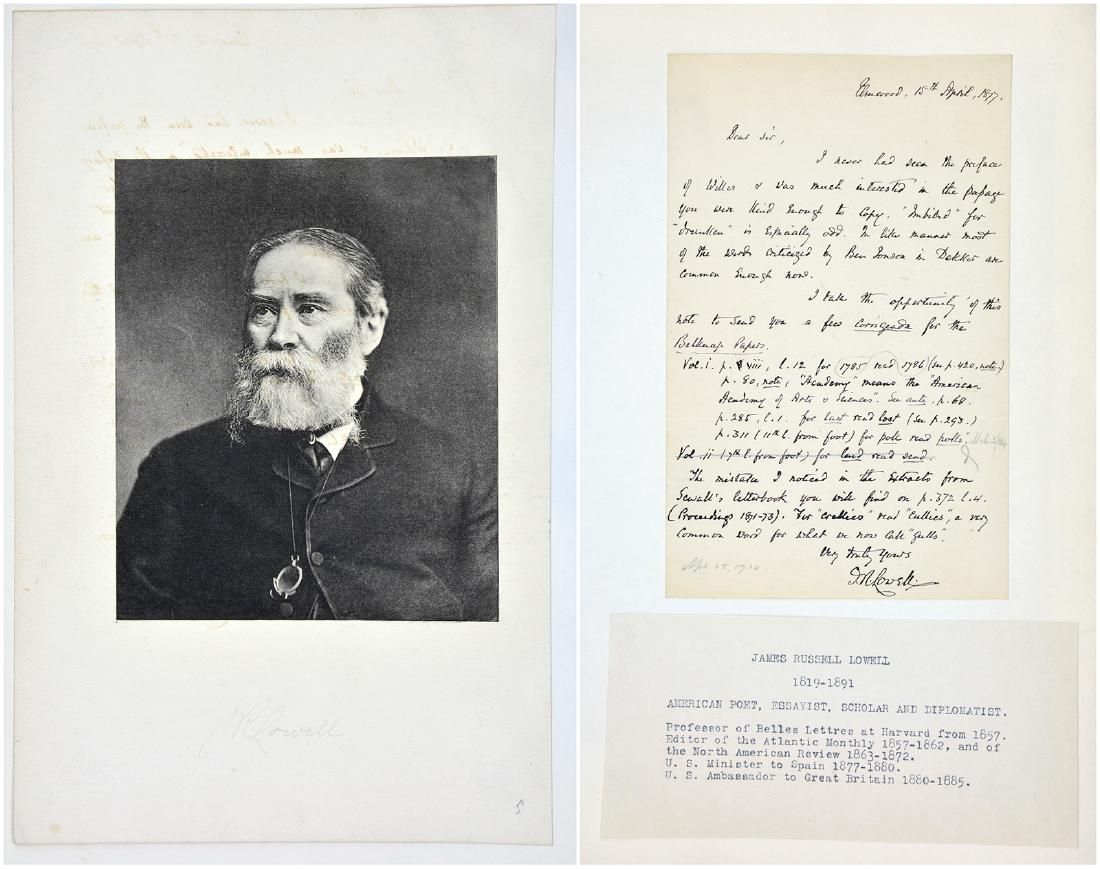 J. R. Lowell
5
Elmwood, 15th April, 1877.
Dear Sir,
I never had seen the preface
of Willes & was much interested in the passage
you were kind enough to copy. "Imbibed" for
"drunken" is especially odd. In like manner most
of the words criticized by Ben Jonson in Dekker are
common enough now.
I take the opportunity of this
note to send you a few corrigenda for the
Belknap Papers.
Vol. i. p. viii, l. 12 for 1785 read 1786 (see p. 420, note.)
p. 80, note, "Academy" means the "American
Academy of Arts & Sciences". See ante, p. 68.
p. 285, l. 1. for last read lost (see p. 293.)
p. 311 (11th l. from foot) for pole read polls.
Vol. ii (7th l. from foot) for land read send.
The mistake I noticed in the extracts from
Sewall's letterbook you will find on p. 372 l. 4.
(Proceedings 1871-73). For "crallies" read "cullies", a very
common word for what we now call "gulls".
Very truly yours
J. R. Lowell.
JAMES RUSSELL LOWELL
1819-1891
AMERICAN POET, ESSAYIST, SCHOLAR AND DIPLOMATIST.
Professor of Belles Lettres at Harvard from 1857.
Editor of the Atlantic Monthly 1857-1862, and of
the North American Review 1863-1872.
U. S. Minister to Spain 1877-1880.
U. S. Ambassador to Great Britain 1880-1885.